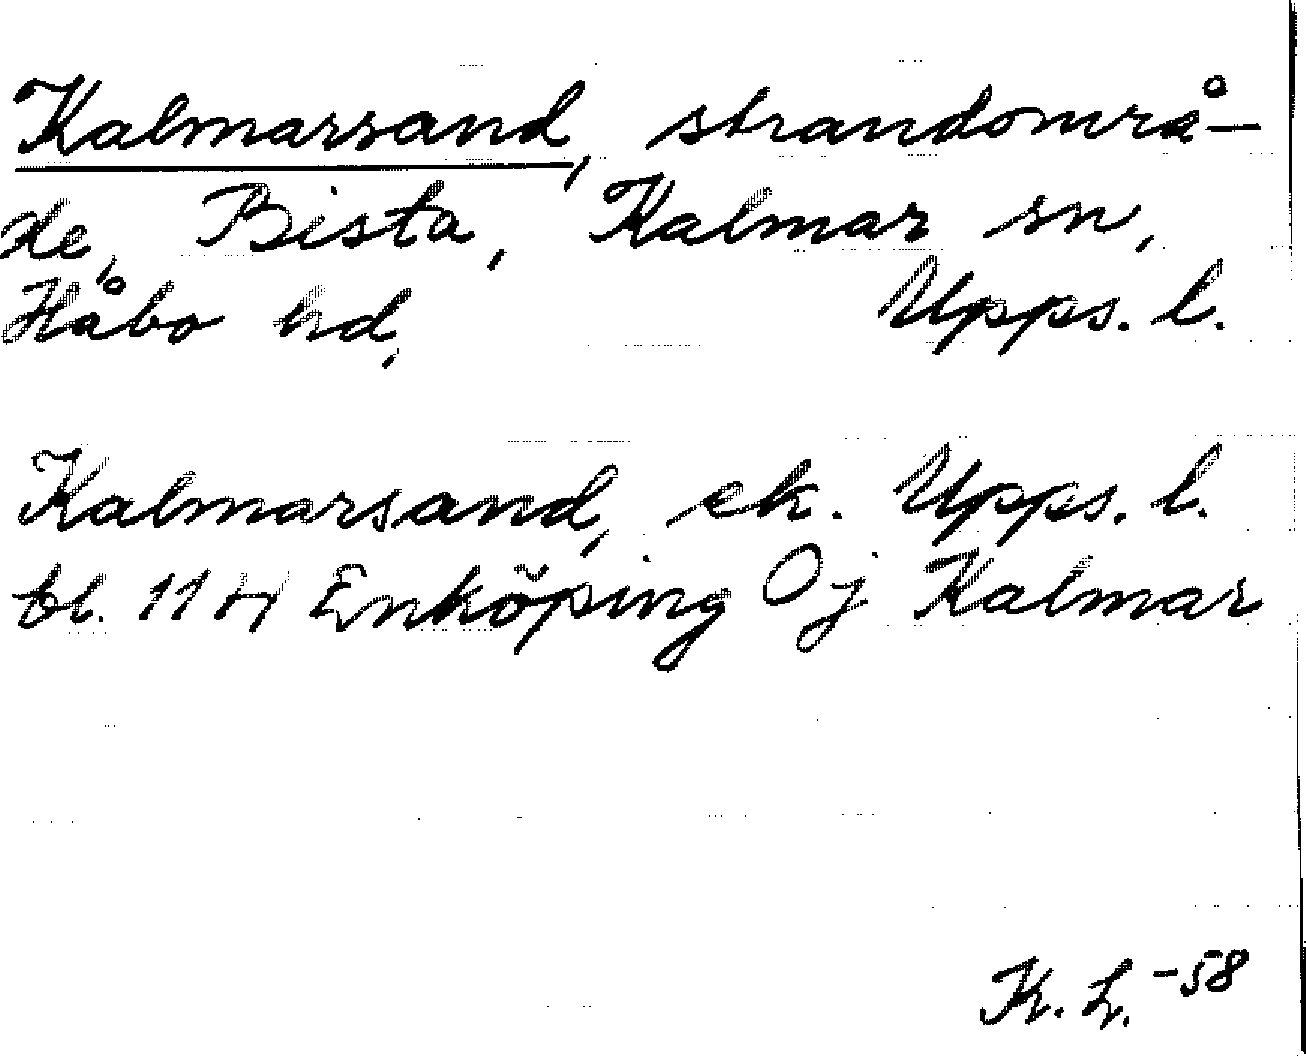 Kalmarsand, strandområ-
de, Bista, Kalmar sn,
Håbo hd, Upps. l.
Kalmarsand, ek. Upps. l.
bl. 11H Enköping Oj Kalmar
K. L. -58